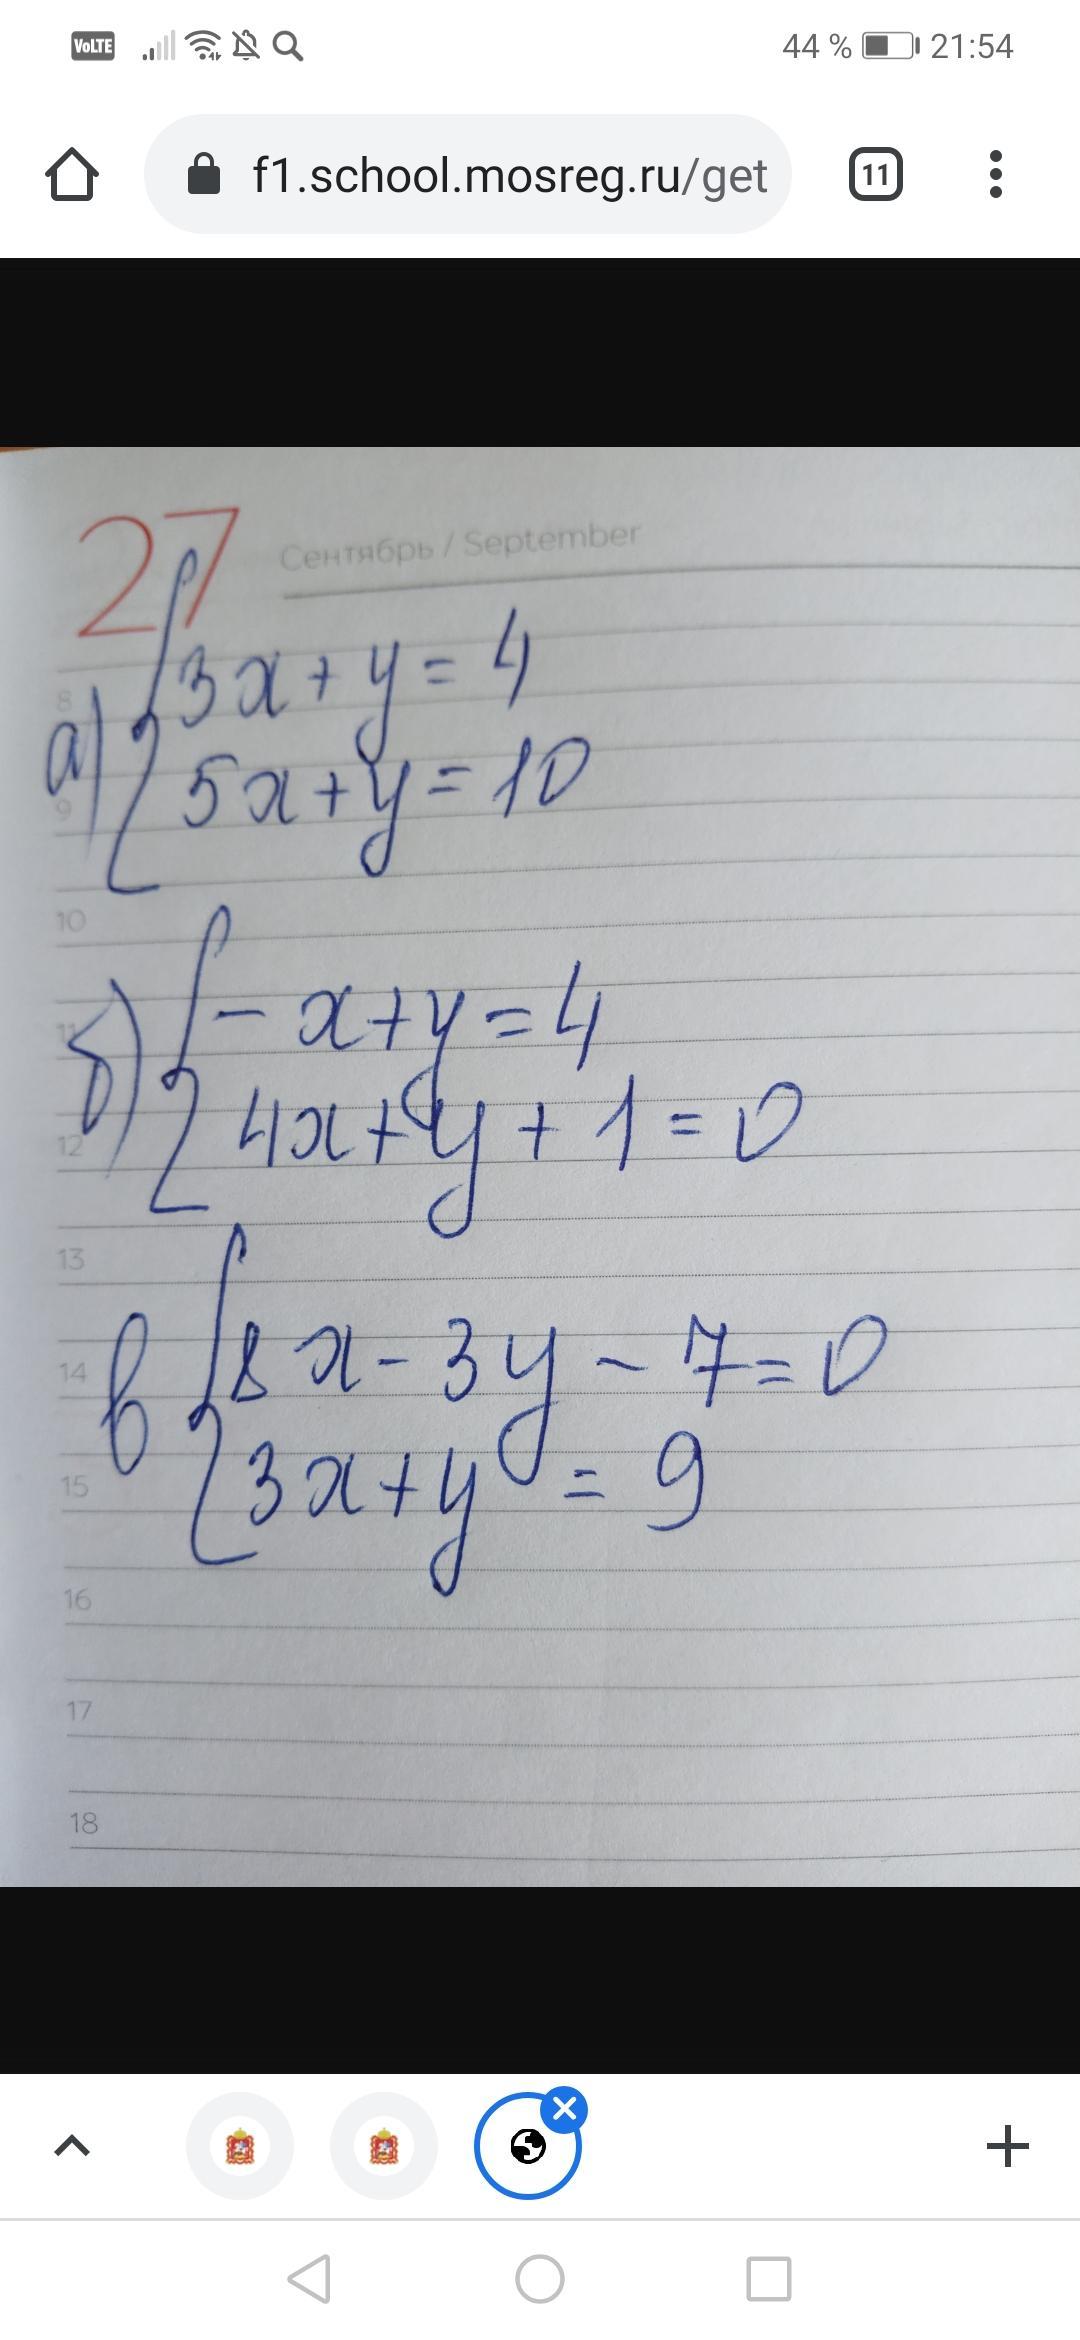 VoLTE 44 % 21:54
f1.school.mosreg.ru/get 11
27 Сентябрь / September
8
а) 3x + y = 4
9
5x + y = 10
10
11
б) - x + y = 4
12
4x + y + 1 = 0
13
14
в 8x - 3y - 7 = 0
15
3x + y = 9
16
17
18